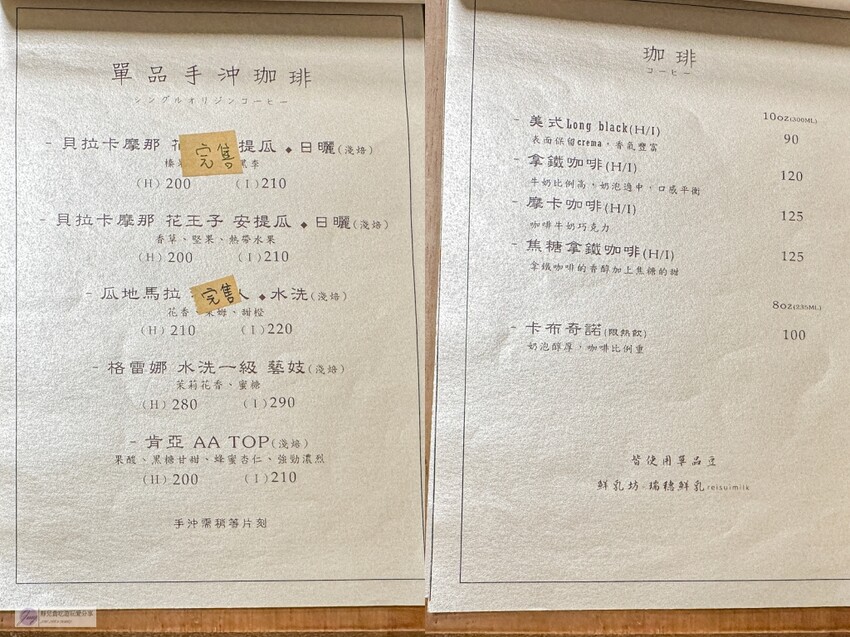 單品手沖珈琲
シングルオリジンコーヒー
- 貝拉卡摩那 花 完售 提瓜 ◆ 日曬(淺焙)
榛 黑李
(H) 200 (I) 210
- 貝拉卡摩那 花王子 安提瓜 ◆ 日曬(淺焙)
香草、堅果、熱帶水果
(H) 200 (I) 210
- 瓜地馬拉 完售 人 ◆ 水洗(淺焙)
花香、烏梅、甜橙
(H) 210 (I) 220
- 格雷娜 水洗一級 藝妓(淺焙)
茉莉花香、蜜糖
(H) 280 (I) 290
- 肯亞 AA TOP(淺焙)
果酸、黑糖甘甜、蜂蜜杏仁、強勁濃烈
(H) 200 (I) 210
手沖需稍等片刻
珈琲
コーヒー
10oz(300ML)
- 美式Long black(H/I) 90
表面保留crema，香氣豐富
- 拿鐵咖啡(H/I) 120
牛奶比例高，奶泡適中，口感平衡
- 摩卡咖啡(H/I) 125
咖啡牛奶巧克力
- 焦糖拿鐵咖啡(H/I) 125
拿鐵咖啡的香醇加上焦糖的甜
8oz(235ML)
- 卡布奇諾(限熱飲) 100
奶泡醇厚，咖啡比例重
皆使用單品豆
鮮乳坊-瑞穗鮮乳reisuimilk